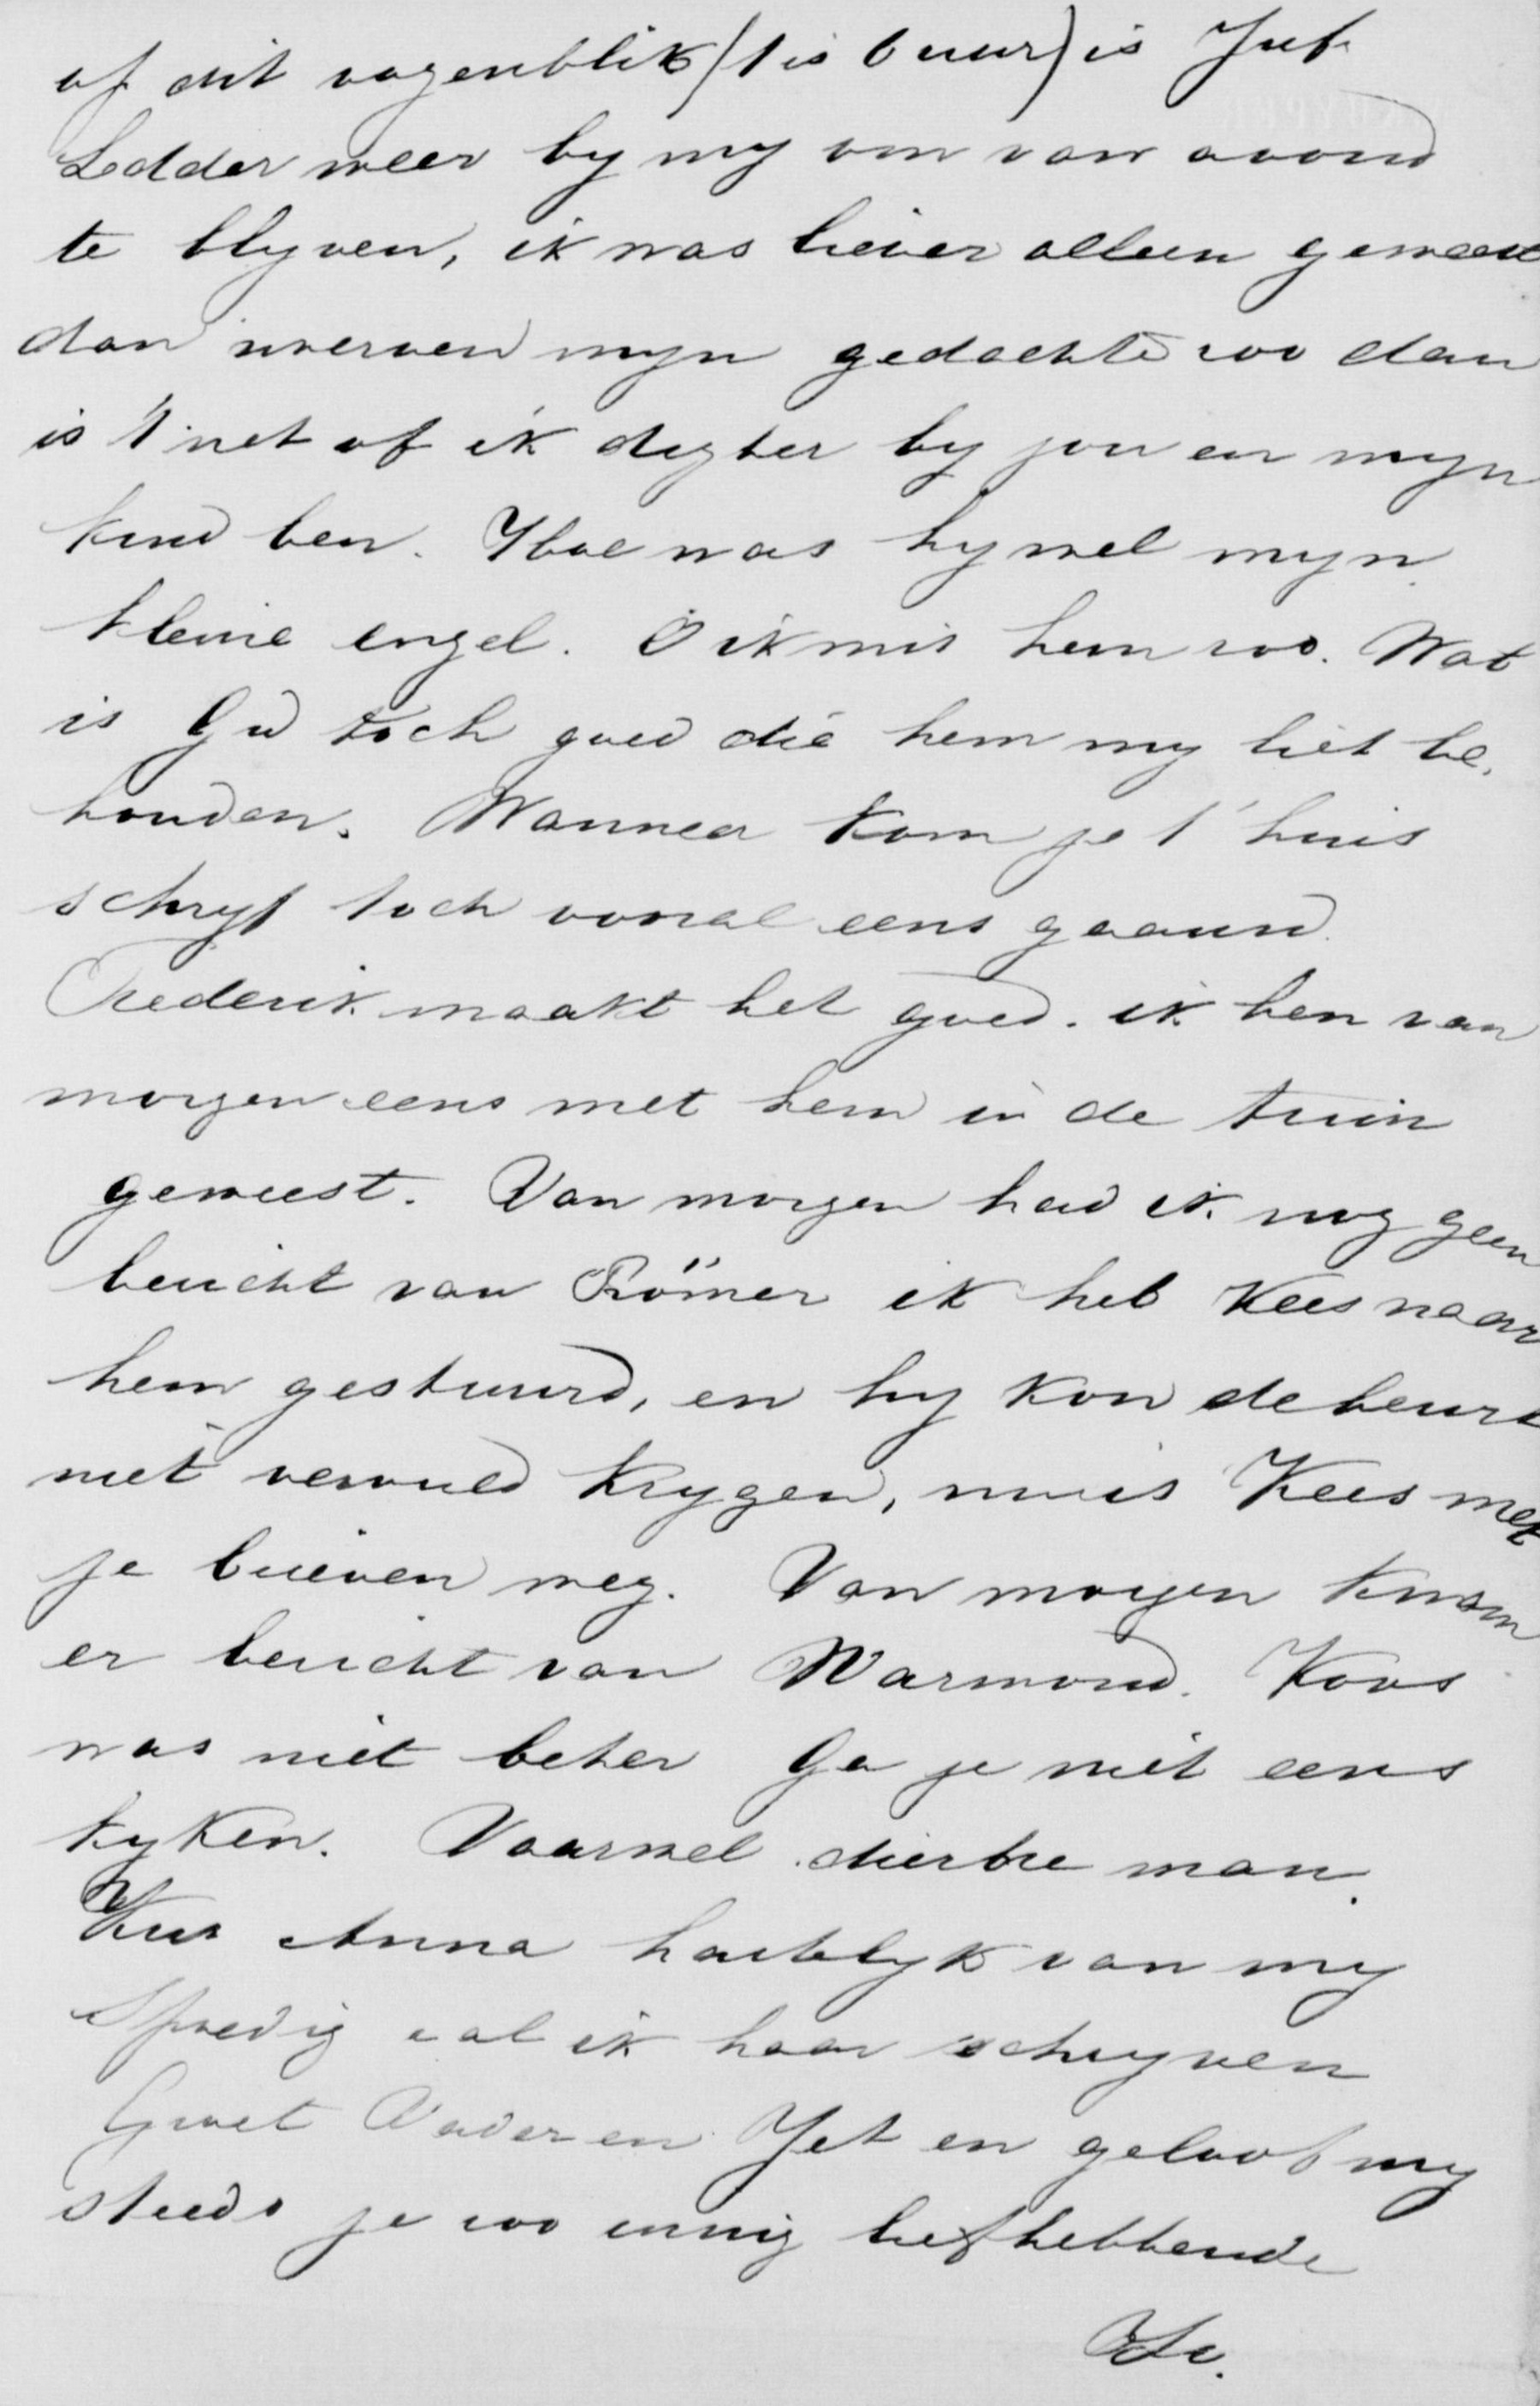 op dit oogenblik (t is 6 uur) is Juf.
Ledder weer by my om van avond
te blyven, ik was liever alleen geweest
dan zwerven myn gedachte zoo dan
is 't net of ik digter by jou en myn
kind ben. Hoe was hy wel myn
kleine engel. O ik mis hem zoo. Wat
is God toch goed die hem my liet be,
houden. Wanneer kom je t'huis
schryf toch vooral eens gaauw.
Frederik maakt het goed. ik ben van
morgen eens met hem in de tuin
geweest. Van morgen had ik nog geen
bericht van Römer ik heb Kees naar
hem gestuurd, en hy kon de beurt
niet vervuld krygen, nu is Kees met
je brieven weg. Van morgen kwam
er bericht van Warmond. Koos
was niet beter Ga je niet eens
kyken. Vaarwel dierbre man.
Kus Anna hartelyk van my
Spoedig zal ik haar schryven
Groet Vader en Jet en geloof my
steeds je zoo innig liefhebbende
Jo.